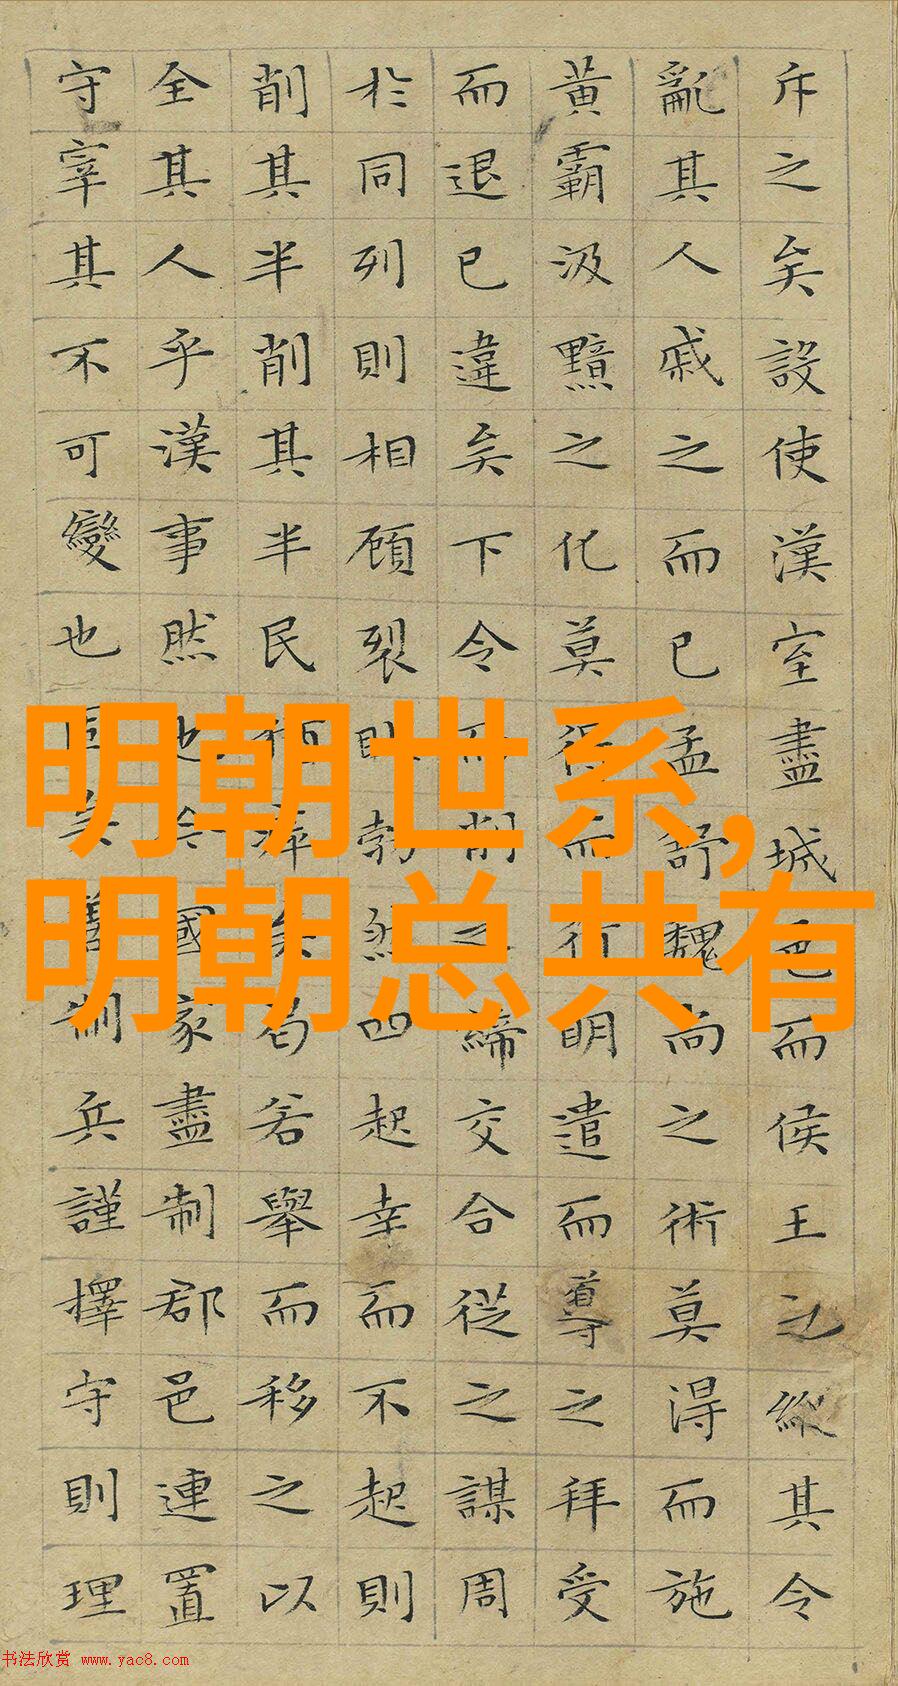 斥之矣設使漢室盡城邑而侯王之縱其令
亂其人戚之而已孟舒魏尚之術莫得而施
黃霸汲黯之化莫得而行明遣而導之拜受
而退已違矣下令而削之締交合從之謀周
於同列則相顧裂眥勃然四起幸而不起則
削其半削其半民猶瘁矣曷若舉而移之以
全其人乎漢事然也今國家盡制郡邑連置
守宰其不可變也固矣善制兵謹擇守則理
明朝世系,
明朝总共有
书法欣赏 www.yac8.com